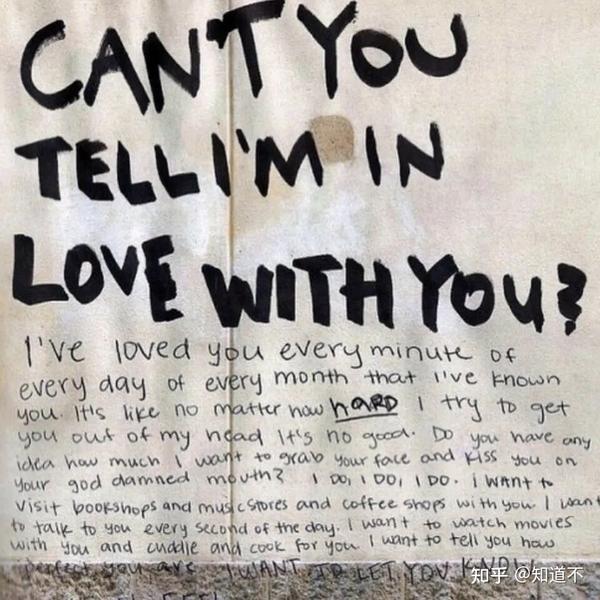 CAN'T YOU
TELL I'M IN
LOVE WITH YOU?
I've loved you every minute of
every day of every month that I've known
you. It's like no matter how hARD I try to get
you out of my head It's no good. Do you have any
idea how much I want to grab your face and kiss you on
your god damned mouth? I DO, I DO, I DO. I want to
visit bookshops and music stores and coffee shops with you. I want
to talk to you every second of the day. I want to watch movies
with you and cuddle and cook for you. I want to tell you how
perfect you are I WANT TO LET YOU KNOW
FEEL
知乎 @知道不